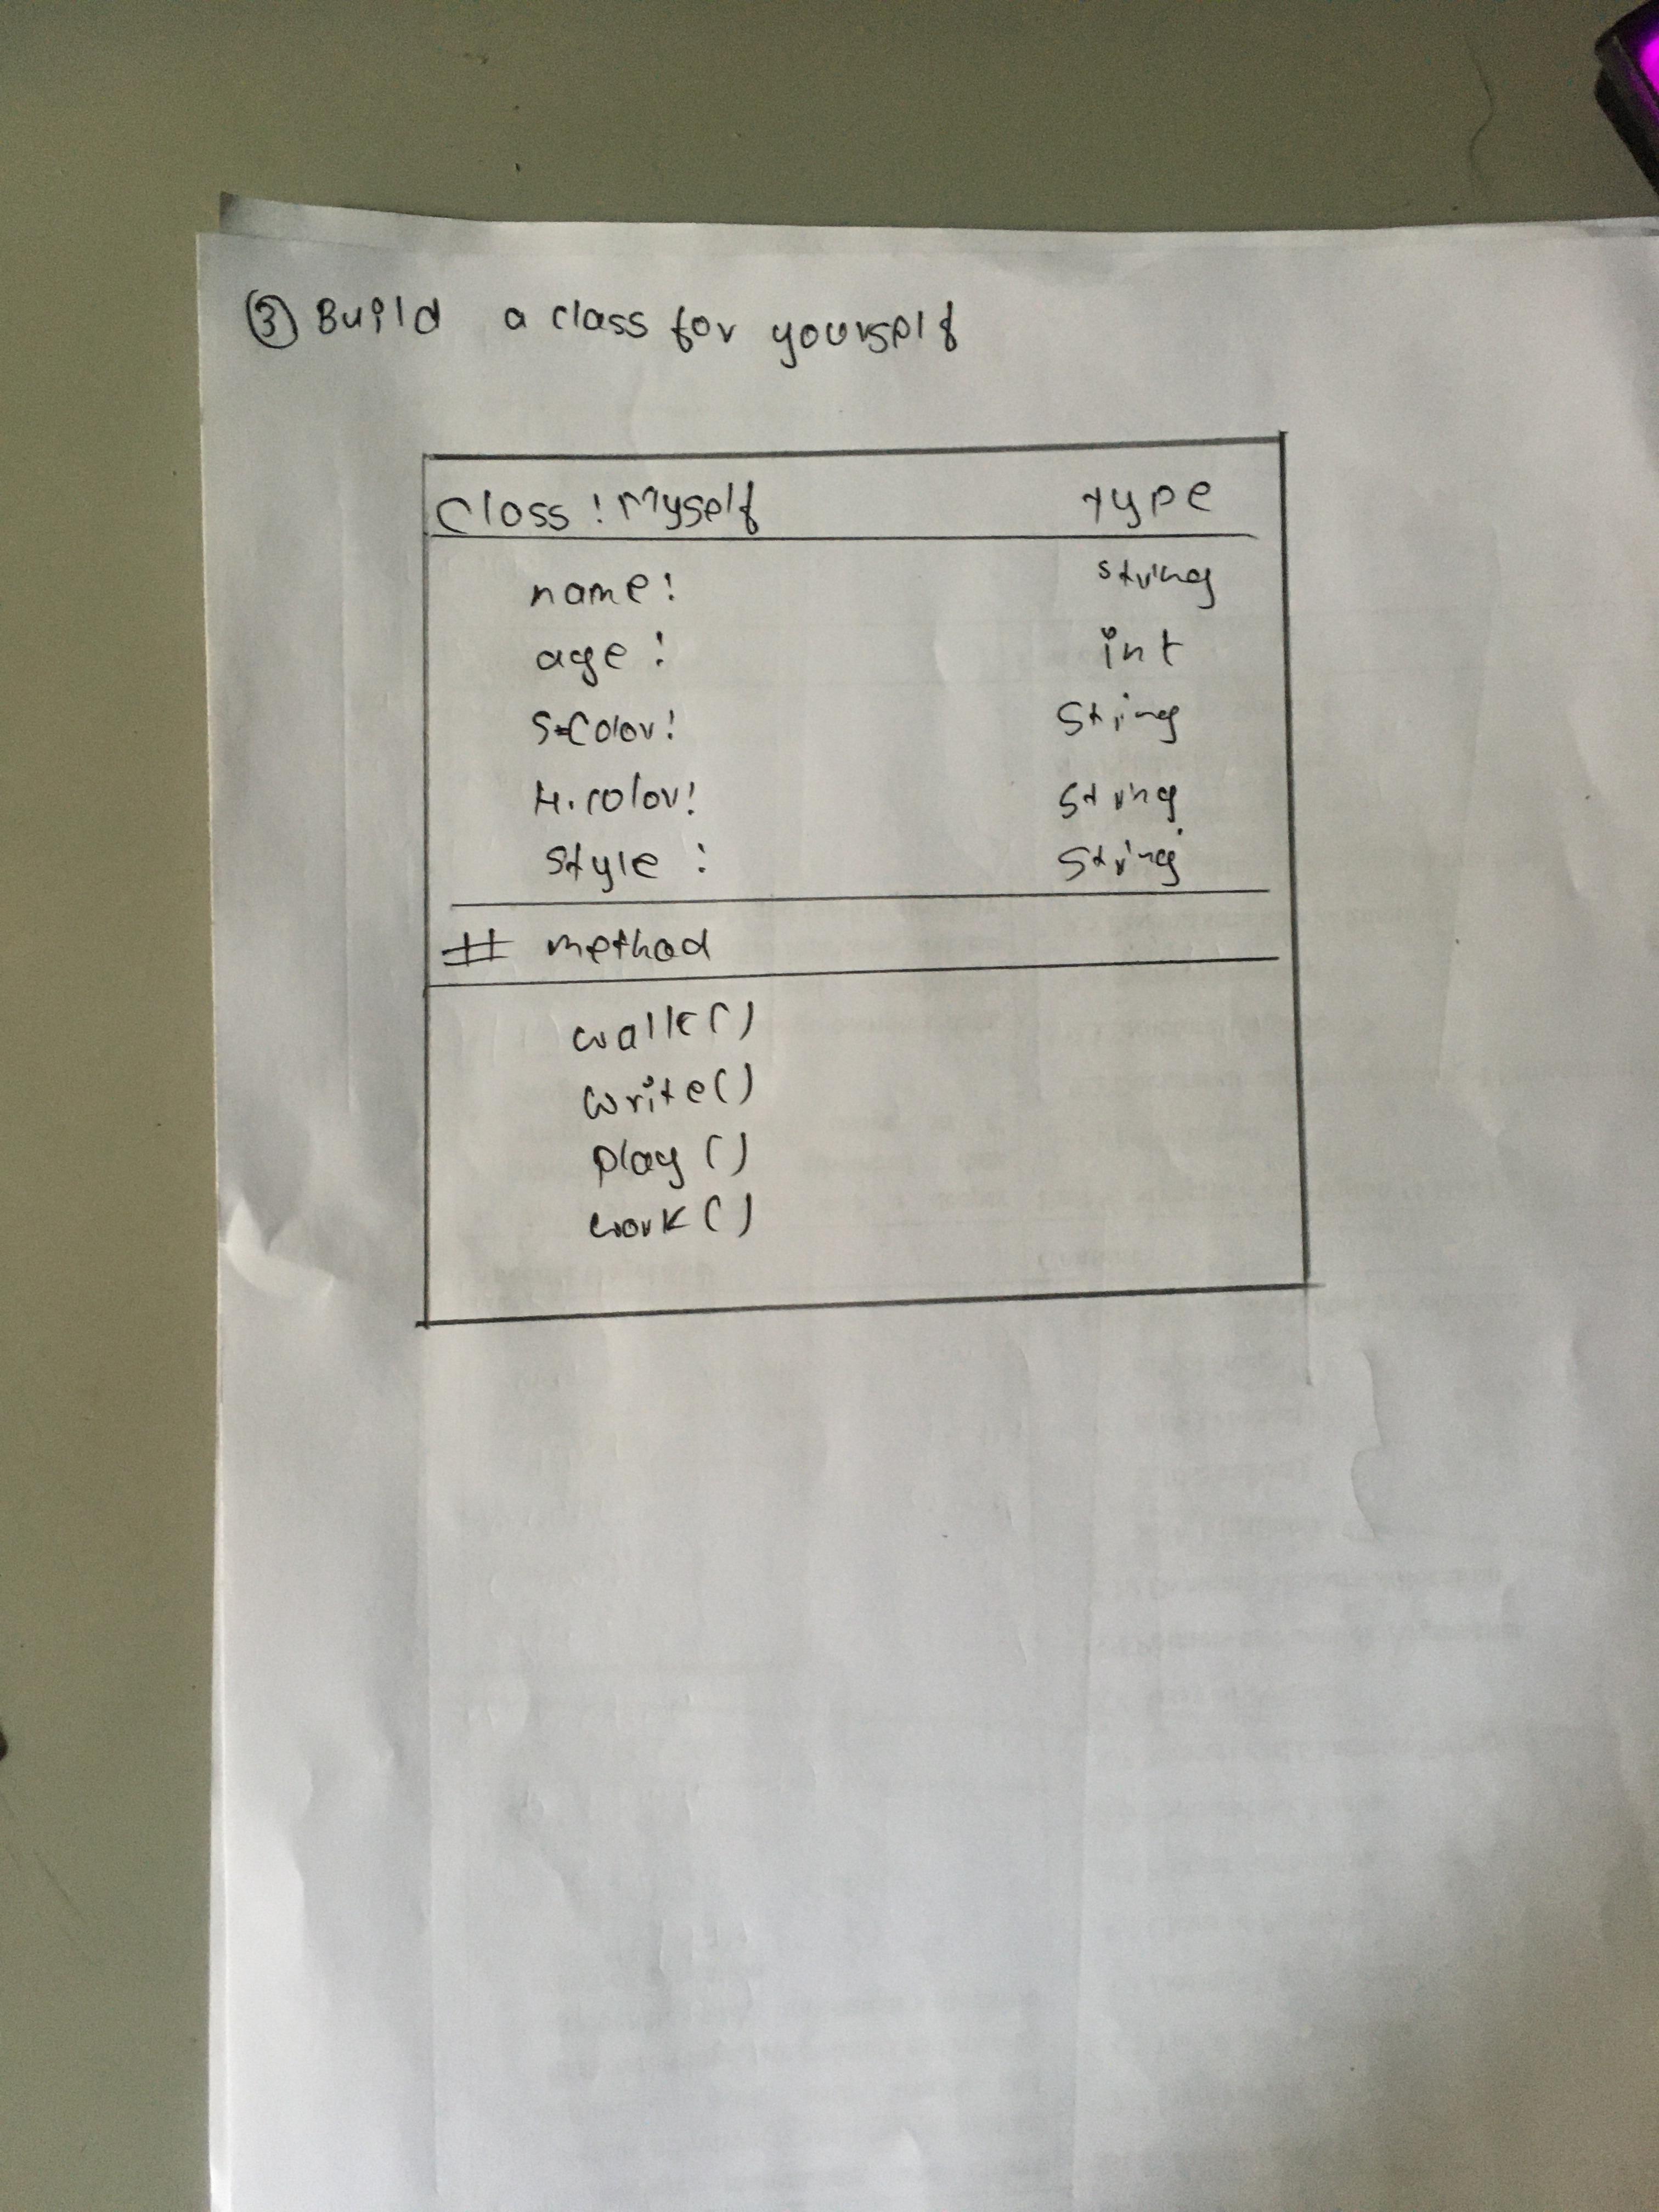 ③ Build a class for yourself
Class : Myself type
name : string
age : int
S.Color : String
H.color : String
Style : String
# method
walk()
write()
play()
work()